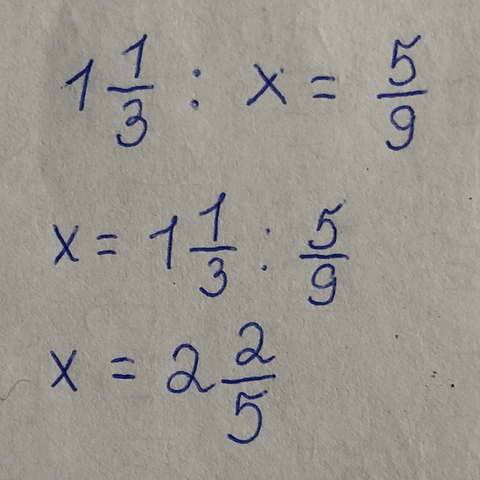 1 1/3 : x = 5/9
x = 1 1/3 : 5/9
x = 2 2/5